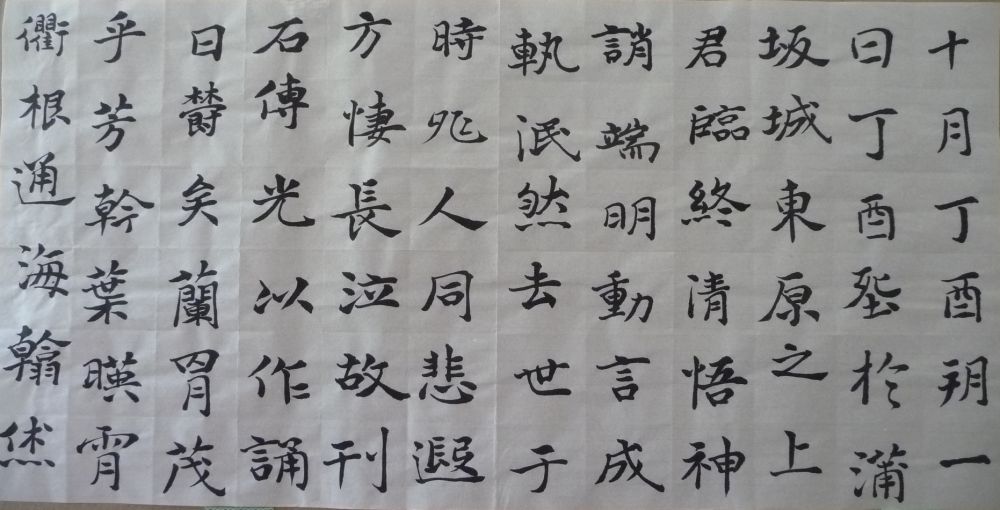 十月丁酉朔一
日丁酉塟於蒲
坂城東原之上
君臨終清悟神
誚端明動言成
軌泯然去世于
時兆人同悲遐
方悽長泣故刊
石傳光以作誦
曰欝矣蘭胄茂
乎芳幹葉暎霄
衢根通海翰倐